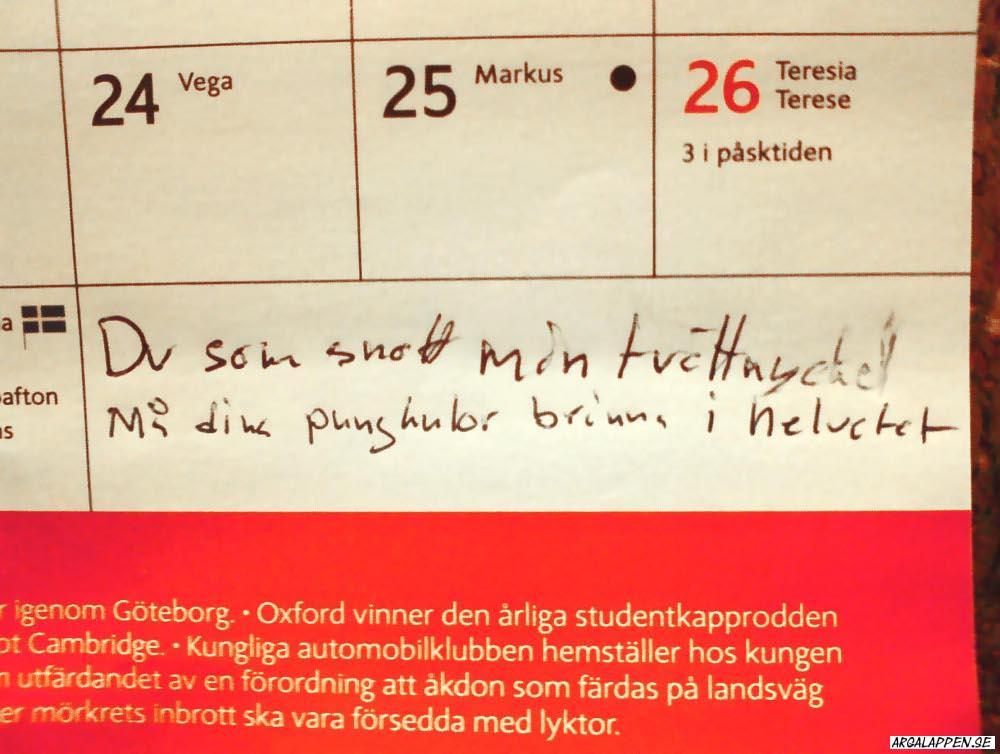 24 Vega
25 Markus
26 Teresia
Terese
3 i påsktiden
a
afton
s
Du som snott min tvättnyckel
Må dina pungkulor brinna i helvetet
r igenom Göteborg. • Oxford vinner den årliga studentkapprodden
ot Cambridge. • Kungliga automobilklubben hemställer hos kungen
n utfärdandet av en förordning att åkdon som färdas på landsväg
er mörkrets inbrott ska vara försedda med lyktor.
ARGALAPPEN.SE